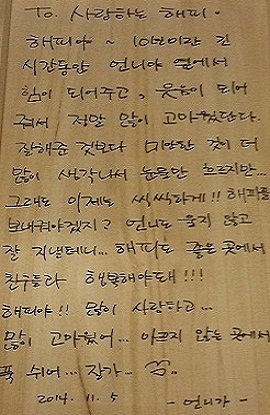 To. 사랑하는 해피.
해피야 ~ 10년이란 긴
시간동안 언니야 옆에서
힘이 되어주고, 웃음이 되어
줘서 정말 많이 고마웠단다.
잘해준 것보다 미안한 것이 더
많이 생각나서 눈물만 흐르지만...
그래도 이제는 씩씩하게!! 해피를
보내줘야겠지? 언니도 울지 않고
잘 지낼테니... 해피도 좋은 곳에서
친구들과 행복해야돼!!!
해피야!! 많이 사랑하고...
많이 고마웠어... 아프지 않는 곳에서
푹 쉬어... 잘가...
2014. 11. 5 - 언니가 -